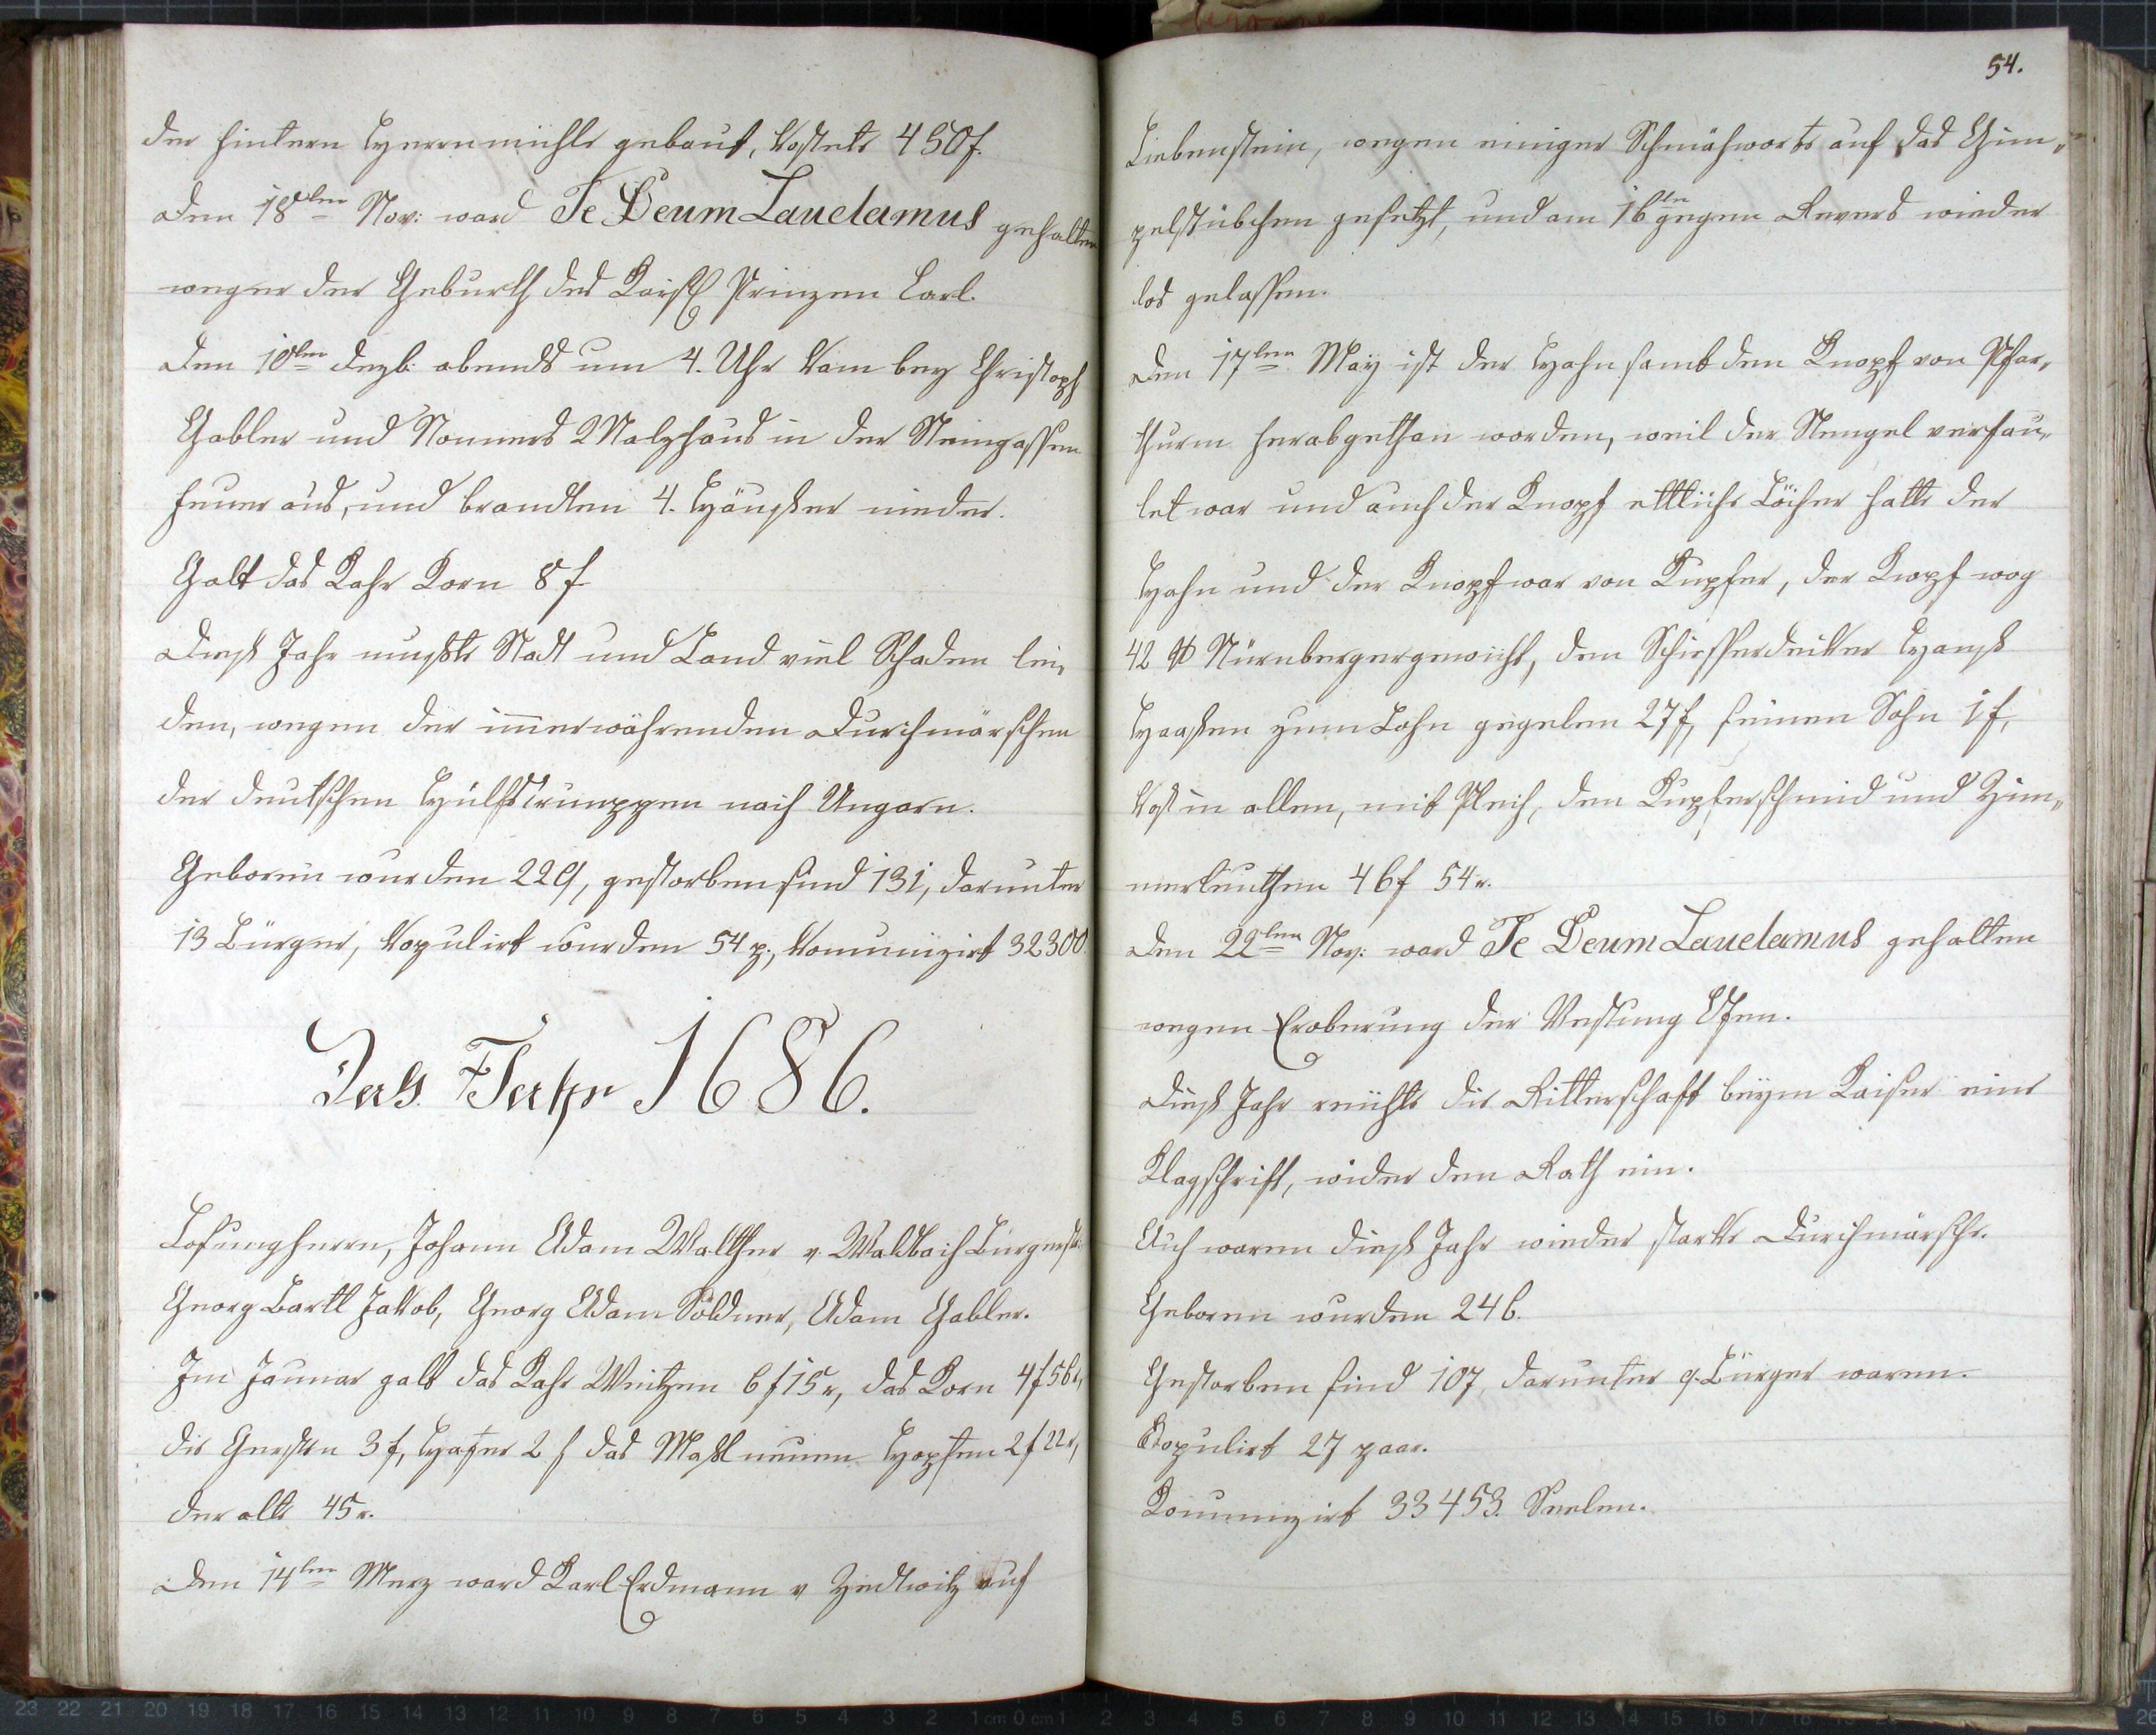 der hintern Herrnmühle gebaut, kostete 450 f.
den 18ten Nov: ward Te Deum Laudamus gehalten
wegen der Geburth des Kaisl Prinzen Carl.
den 10ten dezb. abends um 4. Uhr kam bey Christoph
Gabler und Nonners Malzhaus in der Steingassen
feuer aus, und brandten 4. Häußer nieder.
Galt das Kahr Korn 8 f
dieß Jahr mußte Stadt und Land viel Schaden lei„
den, wegen der im̄erwährenden durchmärschen
der deutschen Hülfstruppen nach Ungarn.
Geboren wurden 229, gestorben sind 131, darunter
13 Bürger, kopulirt wurden 54 p., komunizirt 32300.
Das Jahr 1686.
Losungherrn, Johann Adam Walther v. Waldbach Burgerstr:
Georg Bartl Jakob, Georg Adam Söldner, Adam Gabler.
Im Jannar galt das Kahr Weitzen 6 f 15 r, das Korn 4 f 56 r,
die Gersten 3 f, Hafer 2 f das Maßl neuen Hopfen 2 f 22 r,
der alte 45 r.
den 14ten Merz ward Karl Erdmann v Zedtwitz auf
54.
Liebenstein, wegen einiger Schmähworte auf das Gim„
pelstübchen gesetzt, und am 16ten gegen Revers wieder
los gelassen.
den 17ten May ist der Hahn samt den Knopf von Pfar„
thurm herabgethan worden, weil der Stengel verfau„
let war und auch der Knopf ettliche Löcher hatte der
Hahn und der Knopf war von Kupfer, der Knopf wog
42 ℔ Nürnbergergewicht, den Schiefferdeiker Hanß
Haaßen zum Lohn gegeben 27 f, seinen Sohn 1 f,
kost in allen, mit Plech, den Kupferschmid und Zim„
merleuthen 46 f 54 r.
den 22ten Nov: ward Te Deum Laudamus gehalten
wegen Eroberung der Vestung Ofen.
dieß Jahr reichte die Ritterschaft beym Kaiser eine
Klagschrift, wider den Rath ein.
Auch waren dieß Jahr wieder starke Durchmärsche.
Geboren wurden 246.
Gestorben sind 107, darunter 9. Bürger waren.
Kopulirt 27 paar.
Komunizirt 33453. Seelen.